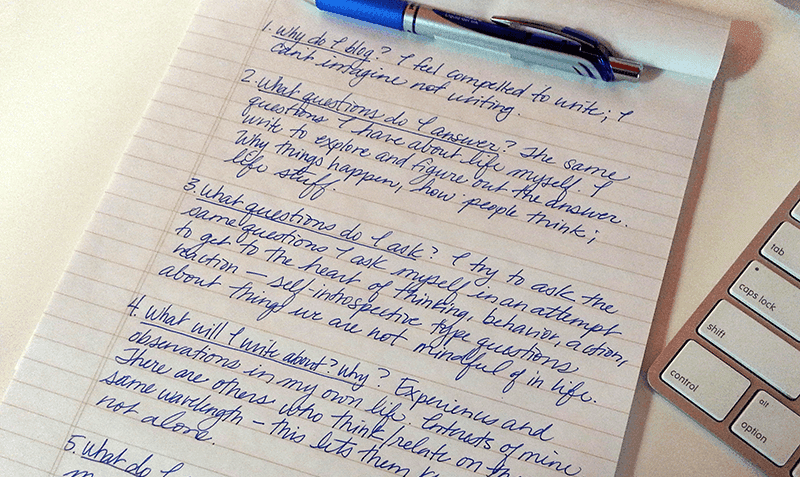 1. Why do I blog? I feel compelled to write; I
can't imagine not writing.
2. What questions do I answer? The same
questions I have about life myself. I
write to explore and figure out the answer.
Why things happen, how people think;
life stuff.
3. What questions do I ask? I try to ask the
same questions I ask myself in an attempt
to get to the heart of thinking, behavior, action,
reaction – self-introspective type questions
about things we are not mindful of in life.
4. What will I write about? Why? Experiences and
observations in my own life. of mine
There are others who think/relate on
same wavelength – this lets them
not alone.
5. What do I
tab
caps lock
shift
control
alt
option